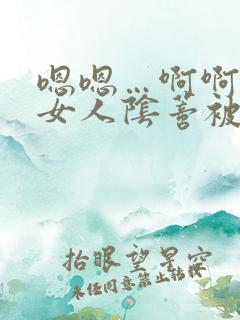 嗯嗯…啊啊
女人陰蒂被
抬眼望星空
未任同意禁止转移